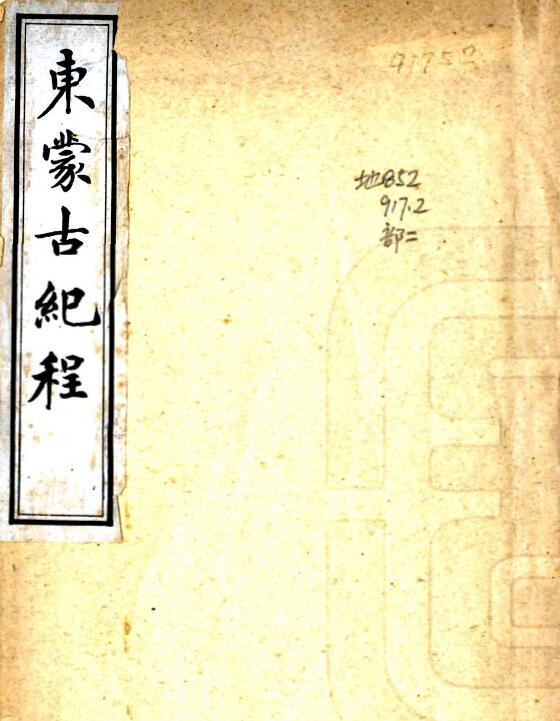 東蒙古紀程
91752
地852
917.2
部二